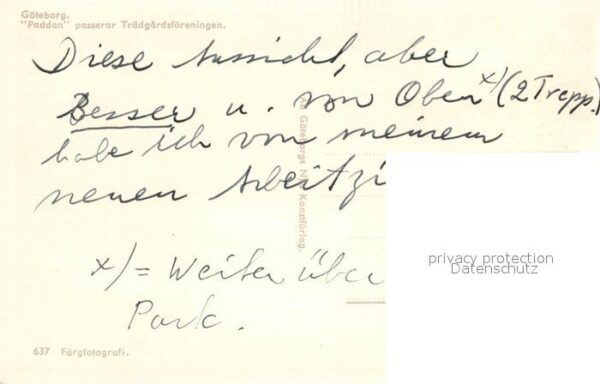 Göteborg.
"Paddan" passerar Trädgårdsföreningen.
Diese Aussicht, aber
Besser u. von Oben x) (2 Trepp.)
habe ich von meinem
neuen Arbeitzi
x) = Weiter über
Park.
AB Göteborgs Konstförlag.
privacy protection
Datenschutz
637 Färgfotografi.